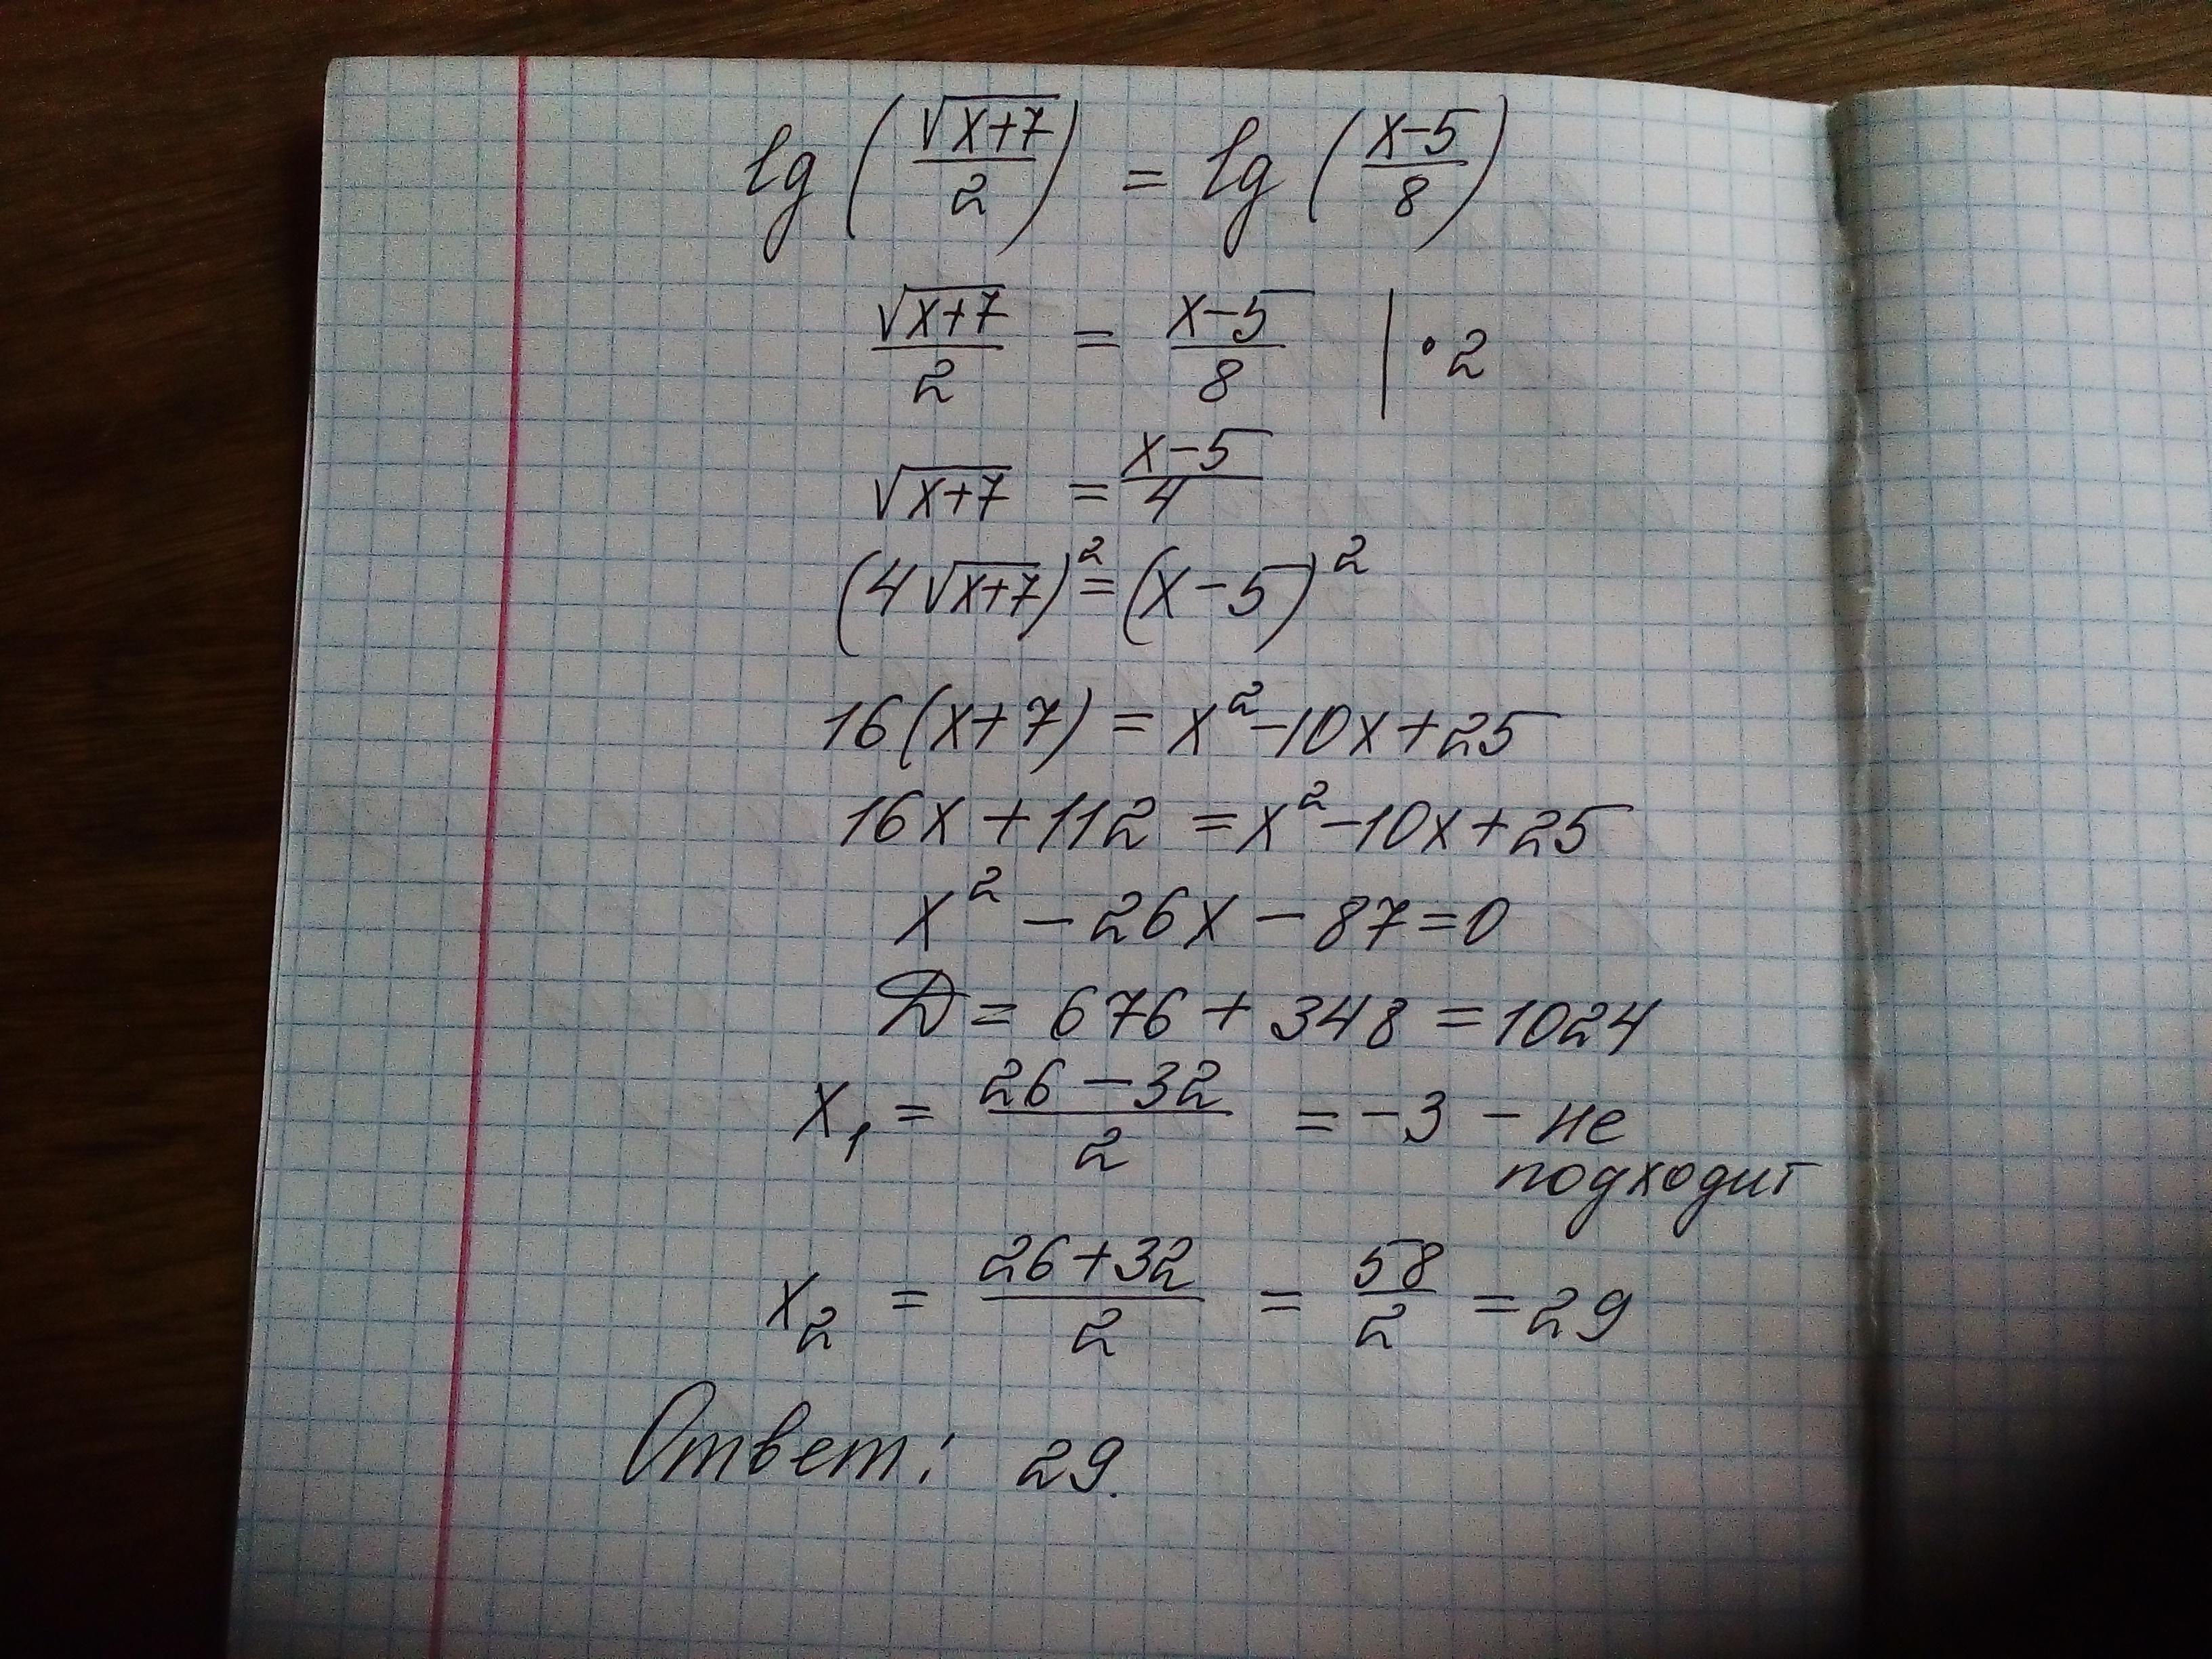 lg (√(x+7)/2) = lg ((x-5)/8)
√(x+7)/2 = (x-5)/8 | · 2
√(x+7) = (x-5)/4
(4√(x+7))² = (x-5)²
16(x+7) = x²-10x+25
16x+112 = x²-10x+25
x² - 26x - 87 = 0
D = 676 + 348 = 1024
x₁ = (26-32)/2 = -3 - не
подходит
x₂ = (26+32)/2 = 58/2 = 29
Ответ: 29.